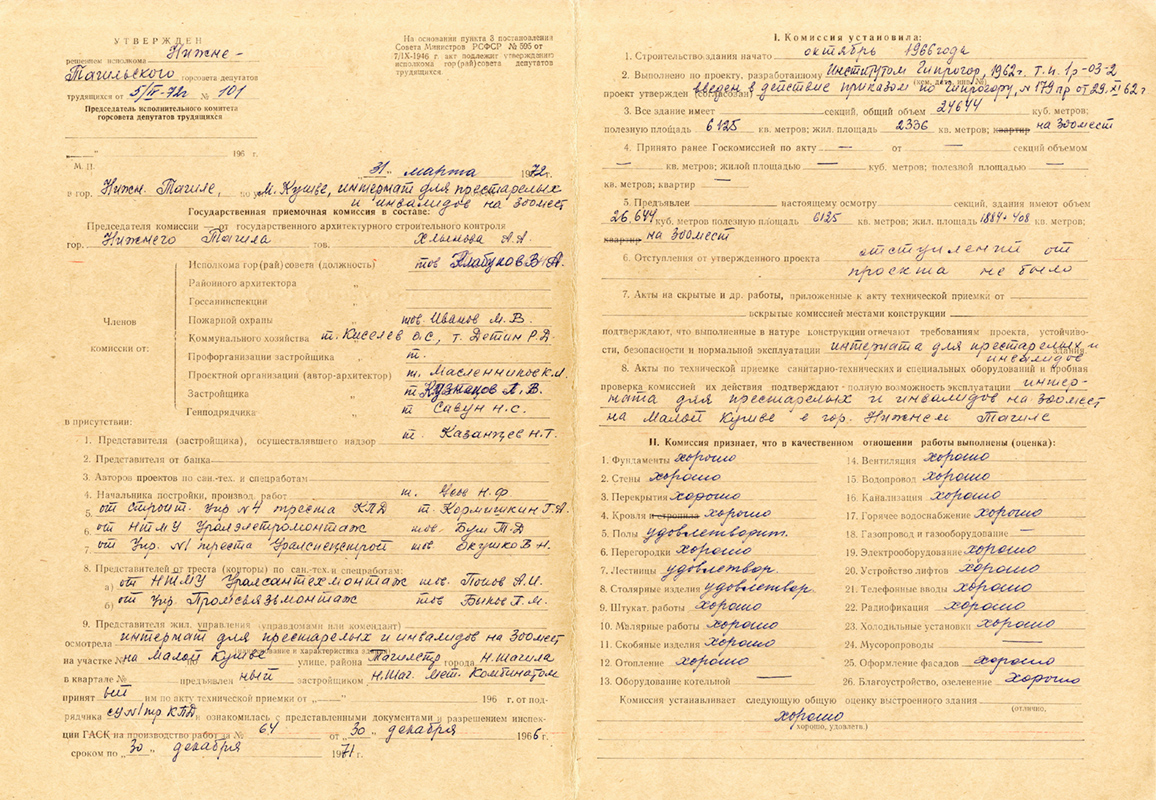 УТВЕРЖДЕН
решением исполкома Нижне-
Тагильского горсовета депутатов
трудящихся от 5/IV-72г № 101
Председатель исполнительного комитета
горсовета депутатов трудящихся
„ “ 196 г.
М. П.
На основании пункта 3 постановления
Совета Министров РСФСР № 595 от
7/IX-1946 г. акт подлежит утверждению
исполкома гор(рай)совета депутатов
трудящихся.
„31“ марта 1972г.
в гор. Нижн. Тагиле, по ул. М. Кушве, интернат для престарелых
и инвалидов на 300мест
Государственная приемочная комиссия в составе:
Председателя комиссии — от государственного архитектурного строительного контроля
гор. Нижнего Тагила тов. Хлынова А.А
Членов
комиссии от:
Исполкома гор(рай)совета (должность) тов
Районного архитектора „
Госсанинспекции „
Пожарной охраны „ тов. Иванов М. В.
Коммунального хозяйства т. Киселев О.С, т. Детин Р.Д.
Профорганизации застройщика „ т.
Проектной организации (автор-архитектор) т. Масленников
Застройщика „ т. Кузнецов Л. В.
Генподрядчика „ т Савун Н.С.
в присутствии:
1. Представителя (застройщика), осуществлявшего надзор т. Казанцев Н.Т.
2. Представителя от банка
3. Авторов проектов по сан.-тех. и спецработам
4. Начальника постройки, производ. работ т. Усов Н.Ф.
5. от строит. Упр №4 треста КПД т. Кормишкин Г.А.
6. от НТМУ Уралэлетромонтаж тов. Бум Т.Д
7. от Упр. №1 треста Уралспецстрой тов. Окушко В Н.
8. Представителей от треста (конторы) по сан.-тех. и спецработам:
а) от НТМУ Уралсантехмонтаж тов. Попов А.И.
б) от Упр. Промсвязьмонтаж тов Быков Г.М.
9. Представителя жил. управления (управдомами или комендант)
осмотрела интернат для престарелых и инвалидов на 300мест
(наименование и характеристика здания)
на участке № на Малой Кушве по улице, района Тагилстр города Н.Тагила
в квартале № предъявленный застройщиком Н.Таг. Мет. Комбинатом
принятый им по акту технической приемки от „ “ 196 г. от под-
рядчика СУ№1тр КПД и ознакомилась с представленными документами и разрешением инспек-
ции ГАСК на производство работ за № 64 от „30“ декабря 1966 г.
сроком по „30“ декабря 1971г.
I. Комиссия установила:
1. Строительство здания начато октябрь 1966года
2. Выполнено по проекту, разработанному Институтом Гипрогор, 1962г. Т.п. 1р-03-2
(кем, дата, инв. №)
проект утвержден (согласован) введен в действие приказом по Гипрогору, №179 пр от 29.XI 62г
3. Все здание имеет секций, общий объем 24644 куб. метров;
полезную площадь 6125 кв. метров; жил. площадь 2336 кв. метров; квартир на 300мест
4. Принято ранее Госкомиссией по акту — от — секций объемом
— кв. метров; жилой площадью — куб. метров; полезной площадью —
кв. метров; квартир —
5. Предъявлен настоящему осмотру секций, здания имеют объем
26644 куб. метров полезную площадь 6125 кв. метров; жил. площадь 1884+408 кв. метров;
квартир на 300мест
6. Отступления от утвержденного проекта отступлений от
проекта не было
7. Акты на скрытые и др. работы, приложенные к акту технической приемки от
вскрытые комиссией местами конструкции
подтверждают, что выполненные в натуре конструкции отвечают требованиям проекта, устойчиво-
сти, безопасности и нормальной эксплуатации интерната для престарелых и
инвалидов здания.
8. Акты по технической приемке санитарно-технических и специальных оборудований и пробная
проверка комиссией их действия подтверждают полную возможность эксплуатации интер-
ната для престарелых и инвалидов на 300мест
на Малой Кушве в гор. Нижнем Тагиле
II. Комиссия признает, что в качественном отношении работы выполнены (оценка):
1. Фундаменты хорошо
2. Стены хорошо
3. Перекрытия хорошо
4. Кровля и стропила хорошо
5. Полы удовлетворит.
6. Перегородки хорошо
7. Лестницы удовлетвор.
8. Столярные изделия удовлетвор.
9. Штукат. работы хорошо
10. Малярные работы хорошо
11. Скобяные изделия хорошо
12. Отопление хорошо
13. Оборудование котельной —
14. Вентиляция хорошо
15 Водопровод хорошо
16 Канализация хорошо
17. Горячее водоснабжение хорошо
18. Газопровод и газооборудование —
19. Электрооборудование хорошо
20. Устройство лифтов хорошо
21. Телефонные вводы хорошо
22. Радиофикация хорошо
23. Холодильные установки хорошо
24. Мусоропроводы —
25. Оформление фасадов хорошо
26. Благоустройство, озеленение хорошо
Комиссия устанавливает следующую общую оценку выстроенного здания
(отлично,
хорошо
хорошо, удовлетв.)